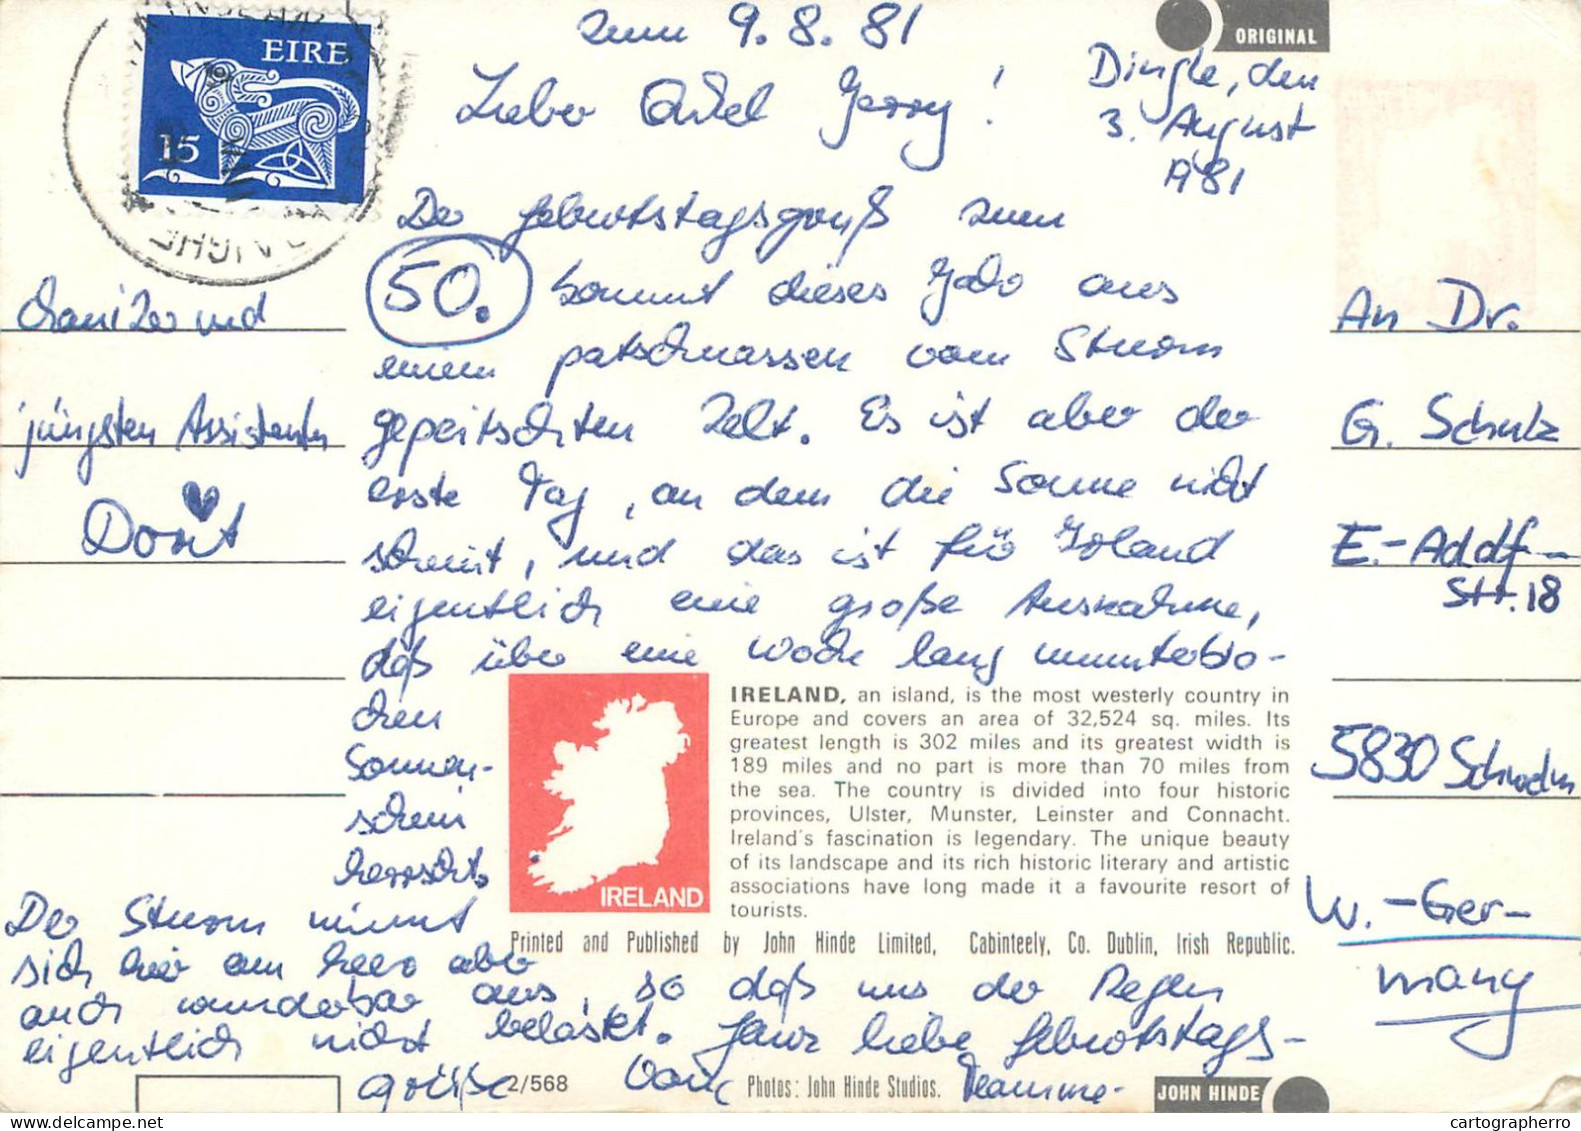 EIRE
15
zum 9.8.81
ORIGINAL
Dingle, den
3. August
1981
Lieber Onkel Gerry!
Der Geburtstagsgruß zum
50. kommt dieses Jahr aus
einem patschnassen vom Sturm
gepeitschten Zelt. Es ist aber der
erste Tag, an dem die Sonne nicht
scheint, und das ist für Irland
eigentlich eine große Ausnahme,
daß über eine Woche lang ununterbro-
chen
Sonnen-
schein
herrscht.
Der Sturm nimmt
sich hier am Meer aber
auch wunderbar aus, so daß uns der Regen
eigentlich nicht belastet. Ganz liebe Geburtstags-
grüße von
und
jüngsten Assistentin
Dorit
An Dr.
G. Schulz
E.-Adolf-
Str. 18
5830 Schwelm
W.-Ger-
many
IRELAND
IRELAND, an island, is the most westerly country in
Europe and covers an area of 32,524 sq. miles. Its
greatest length is 302 miles and its greatest width is
189 miles and no part is more than 70 miles from
the sea. The country is divided into four historic
provinces, Ulster, Munster, Leinster and Connacht.
Ireland's fascination is legendary. The unique beauty
of its landscape and its rich historic literary and artistic
associations have long made it a favourite resort of
tourists.
Printed and Published by John Hinde Limited, Cabinteely, Co. Dublin, Irish Republic.
2/568
Photos: John Hinde Studios.
JOHN HINDE
cartographerro